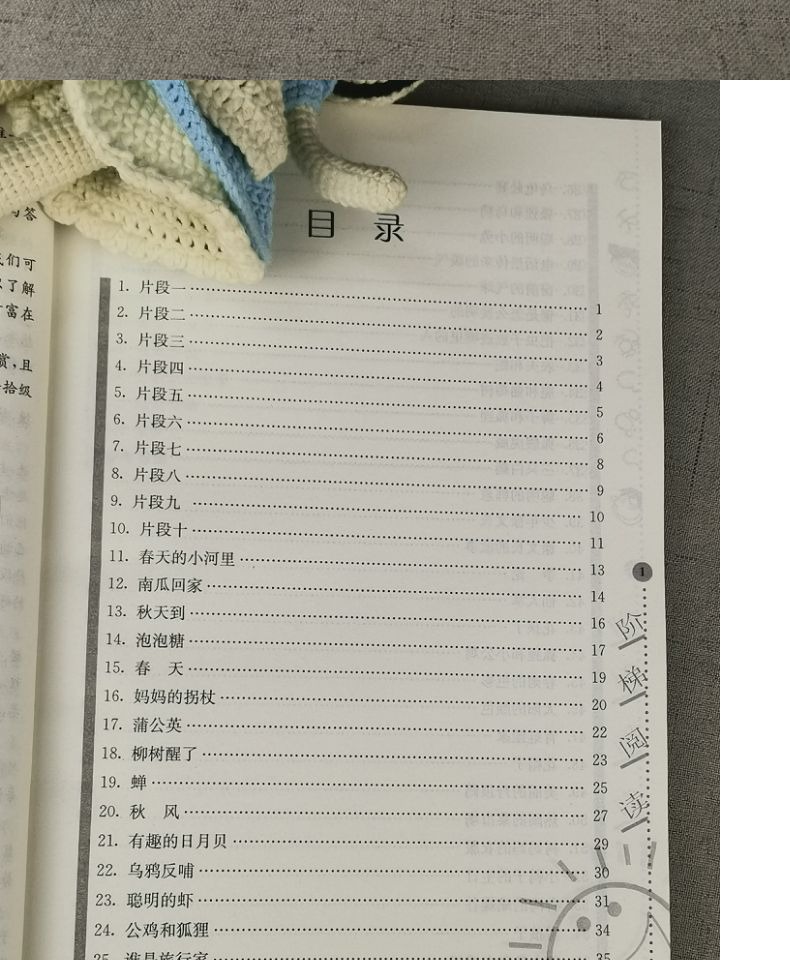 目 录
1. 片段一 1
2. 片段二 2
3. 片段三 3
4. 片段四 4
5. 片段五 5
6. 片段六 6
7. 片段七 8
8. 片段八 9
9. 片段九 10
10. 片段十 11
11. 春天的小河里 13
12. 南瓜回家 14
13. 秋天到 16
14. 泡泡糖 17
15. 春 天 19
16. 妈妈的拐杖 20
17. 蒲公英 22
18. 柳树醒了 23
19. 蝉 25
20. 秋 风 27
21. 有趣的日月贝 29
22. 乌鸦反哺 30
23. 聪明的虾 31
24. 公鸡和狐狸 34
25. 谁是旅行家 35
1
阶梯阅读
们可
了解
富在
赏,且
拾级